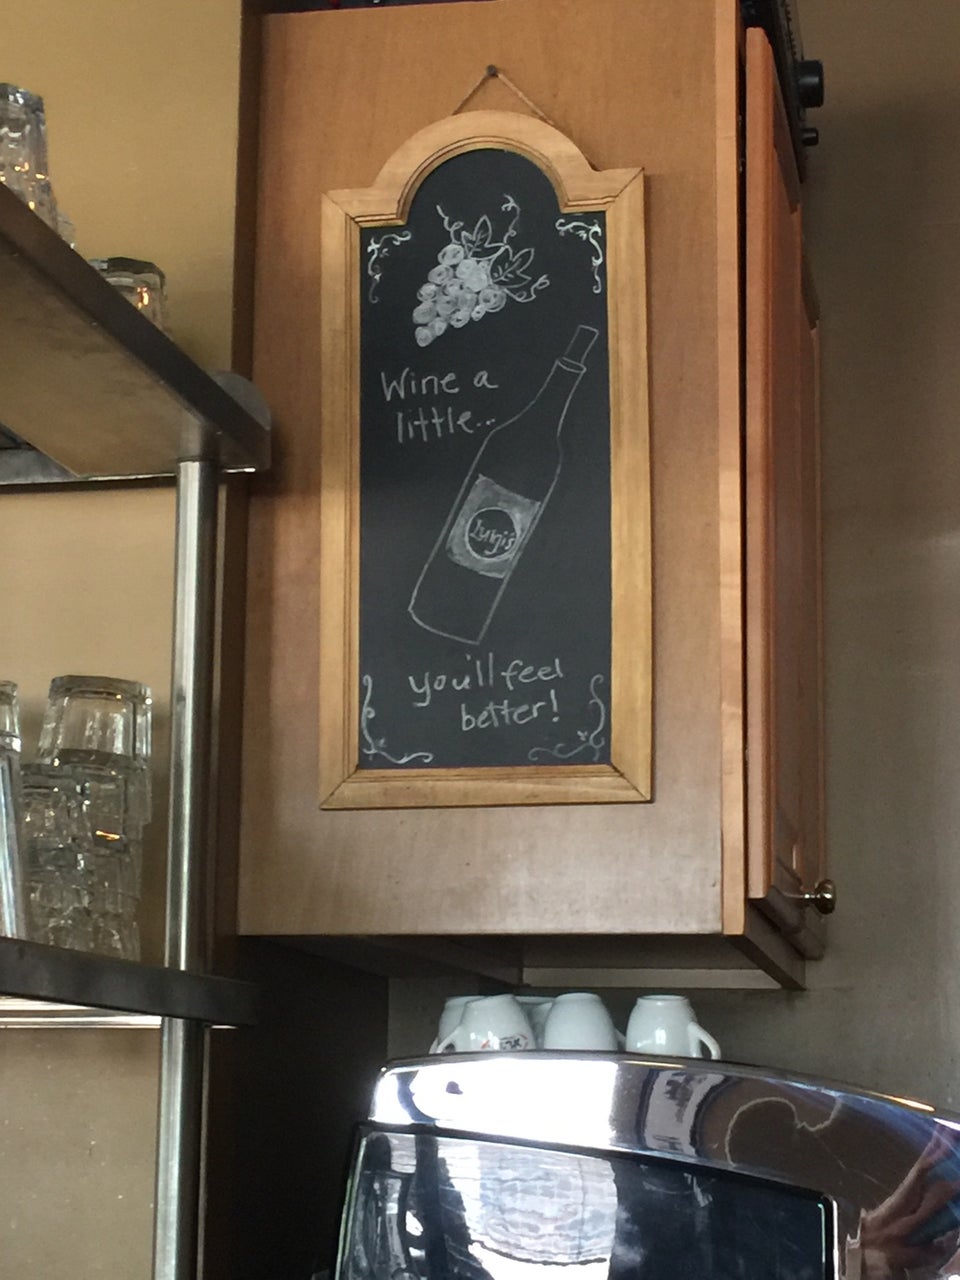 Wine a
little...
Luigi's
you'll feel
better!